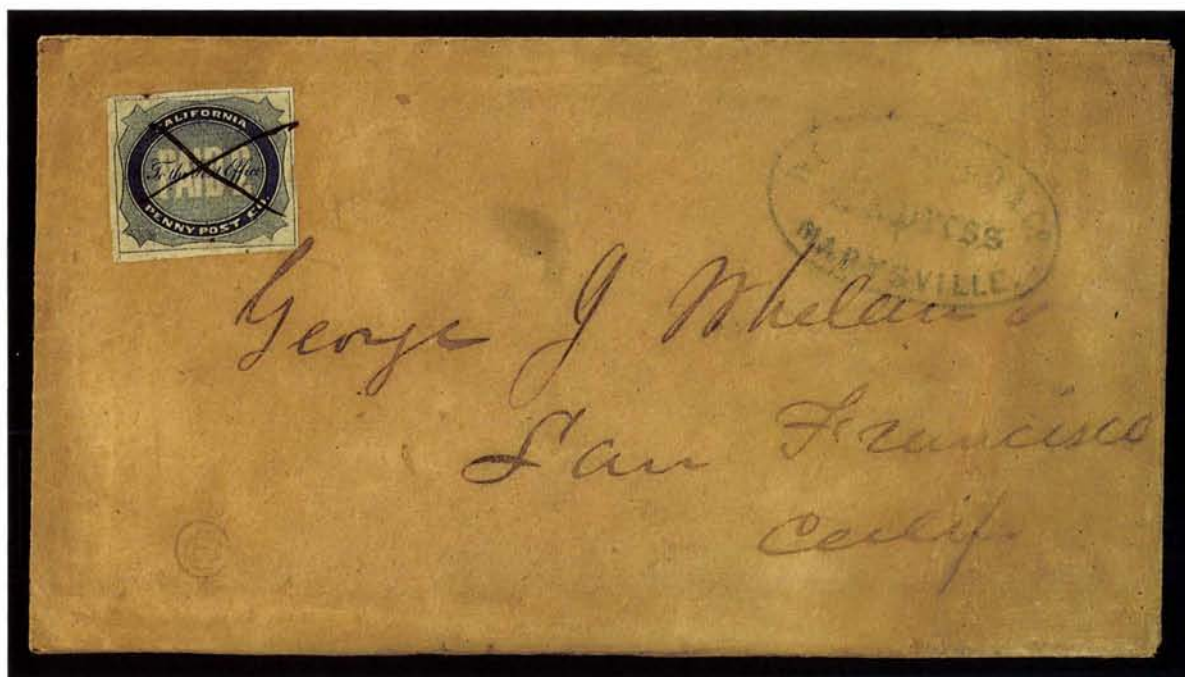 CALIFORNIA
PAID
To the Post Office
PENNY POST CO.
EXPRESS
MARYSVILLE.
George J Whelan
San Francisco
Calif.